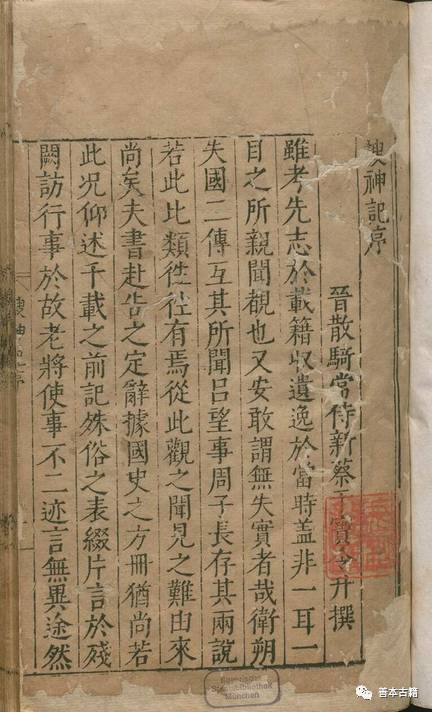 搜神記序
晉散騎常侍新蔡干寶令升撰
雖考先志於載籍収遺逸於當時盖非一耳一
目之所親聞覩也又安敢謂無失實者哉衛朔
失國二傳互其所聞吕望事周子長存其兩說
若此比類徃徃有焉從此觀之聞見之難由來
尚矣夫書赴告之定辭據國史之方冊猶尚若
此况仰述千載之前記殊俗之表綴片言於殘
闕訪行事於故老將使事不二迹言無異途然
Bayerische
Staatsbibliothek
München
善本古籍